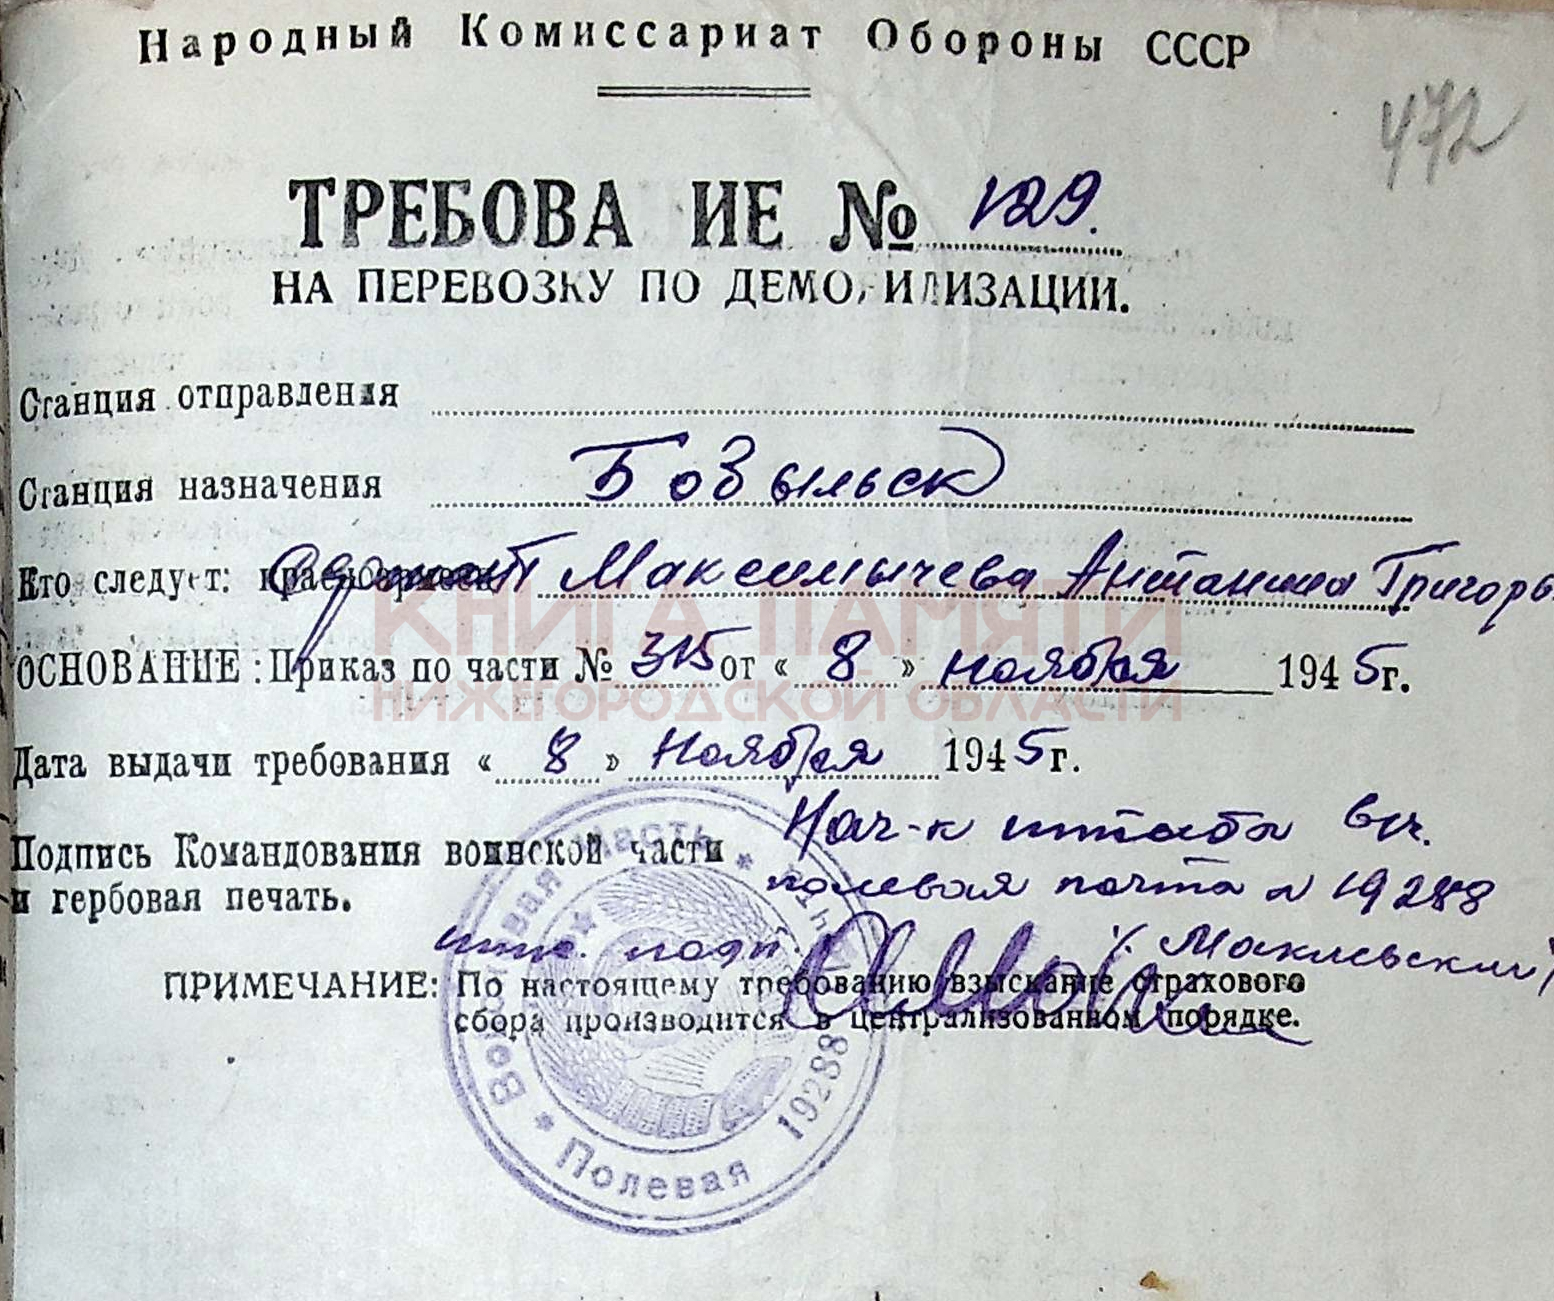 Народный Комиссариат Обороны СССР
472
ТРЕБОВА ИЕ № 129.
НА ПЕРЕВОЗКУ ПО ДЕМО ИЛИЗАЦИИ.
Станция отправления
Станция назначения Бобыльск
Кто следует: красноармеец Сержант Максимычева Антанина Григорь
ОСНОВАНИЕ: Приказ по части № 315 от « 8 » ноября 1945 г.
Дата выдачи требования « 8 » Ноября 1945 г.
Подпись Командования воинской части Нач-к штаба вч.
и гербовая печать. полевая почта N 19288
подп. /Маклевский/
ПРИМЕЧАНИЕ: По настоящему требованию взыскание страхового
сбора производится в централизованном порядке.
Полевая 19288
КНИГА ПАМЯТИ
НИЖЕГОРОДСКОЙ ОБЛАСТИ